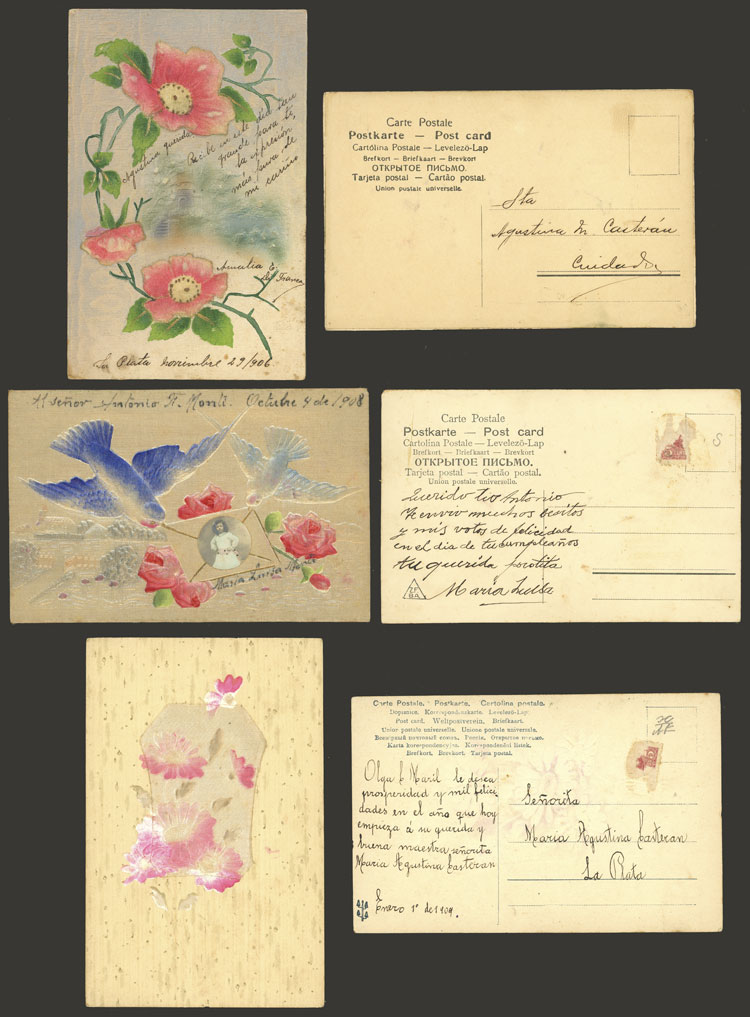 Agustina querida
Recibe en este día tan
grande para tí,
la expresión
mas pura de
mi cariño
Amalia E.
La Plata noviembre 29/906
Carte Postale
Postkarte — Post card
Cartolina Postale — Levelező-Lap
Brefkort — Briefkaart — Brevkort
ОТКРЫТОЕ ПИСЬМО.
Tarjeta postal — Cartão postal.
Union postale universelle.
Sta
Agustina M. Casterán
Ciudad
Al señor Antonio F. Monti. Octubre 4 de 1908
Maria Luisa Monti
Carte Postale
Postkarte — Post card
Cartolina Postale — Levelező-Lap
Brefkort — Briefkaart — Brevkort
ОТКРЫТОЕ ПИСЬМО.
Tarjeta postal — Cartão postal.
Union postale universelle.
S
Querido tio Antonio
Te envio muchos besitos
y mis votos de felicidad
en el dia de tu cumpleaños
tu querida porotita
Maria Luisa
Carte Postale. Postkarte. Cartolina postale.
Dopisnica. Korrespondenzkarte. Levelező-Lap.
Post card. Weltpostverein. Briefkaart.
Union postale universelle. Unione postale universale.
Всемірный почтовый союзъ. Россія. Открытое письмо.
Karta korespondencyjna. Korespondenční lístek.
Brefkort. Brevkort. Tarjeta postal.
Olga E Maril le desea
prosperidad y mil felici
dades en el año que hoy
empieza á su querida y
buena maestra señorita
Maria Agustina Casteran
Enero 1º de 1909.
Señorita
Maria Agustina Casteran
La Plata